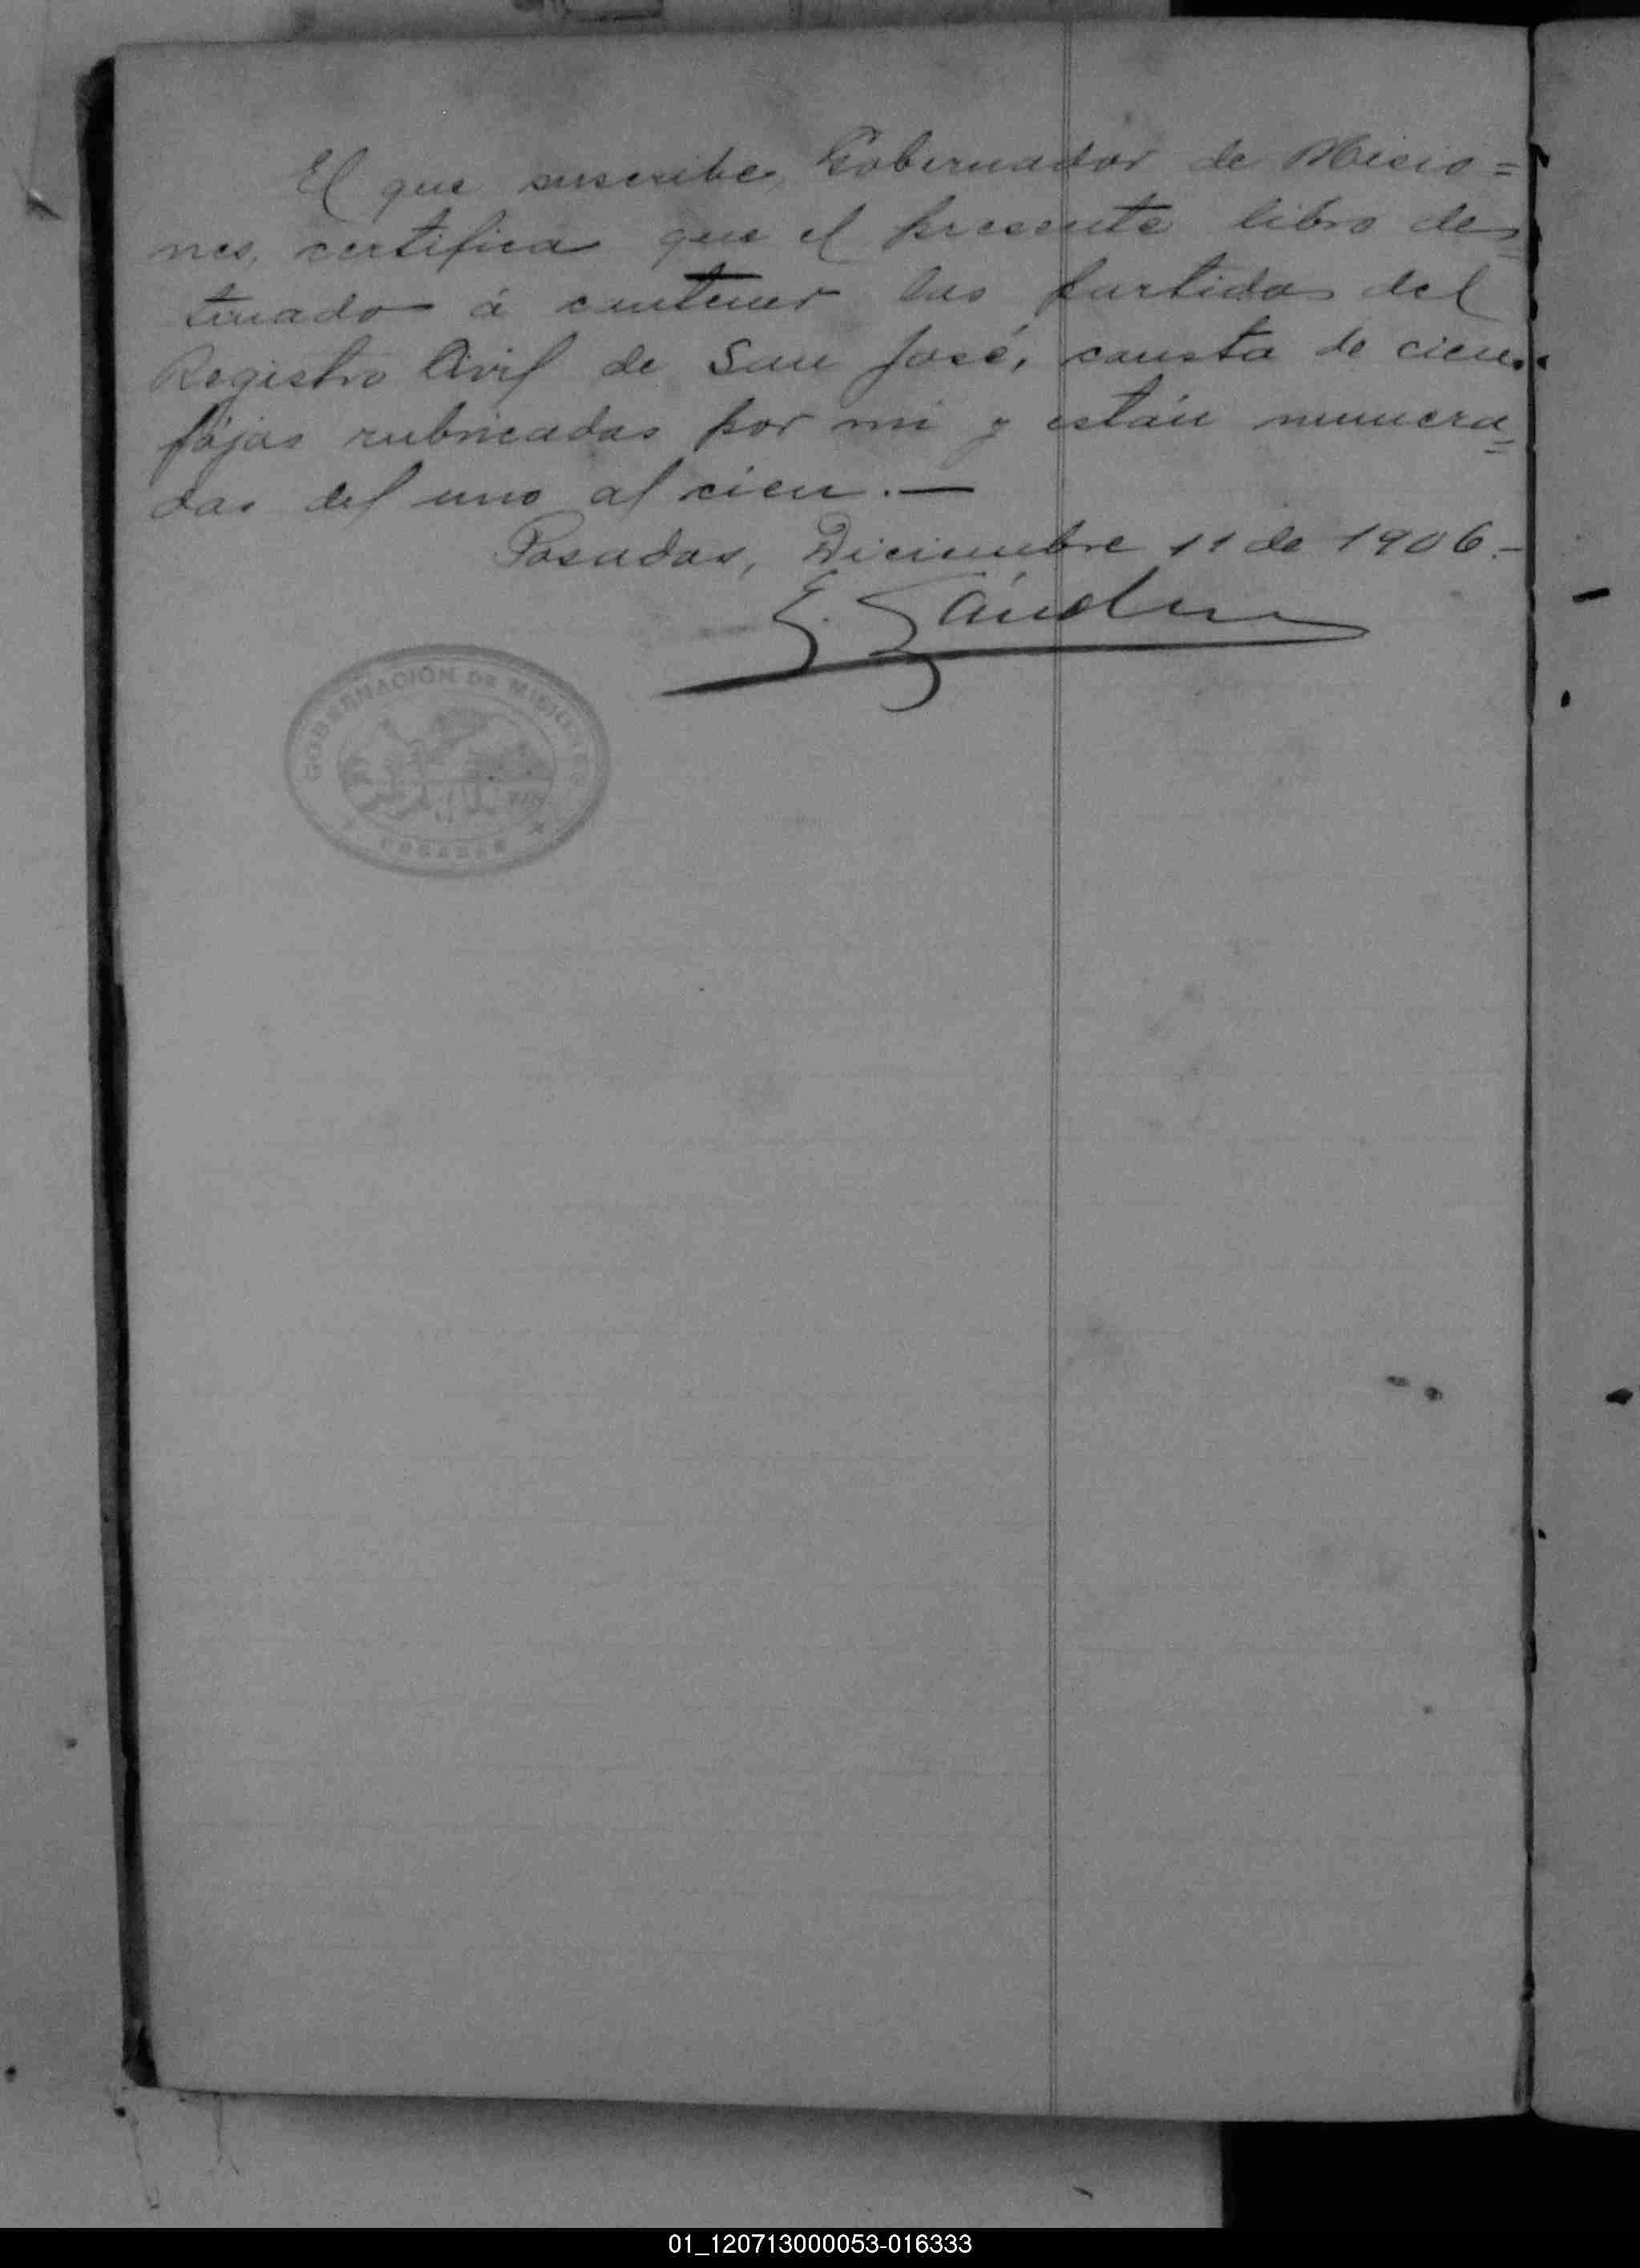 El que suscribe, Gobernador de Misio=
nes, certifica que el presente libro des=
tinado á contener las partidas del
Registro Civil de San José, consta de cien
fojas rubricadas por mi y están numera=
das del uno al cien.—
Posadas, Diciembre 11 de 1906.—
GOBERNACIÓN DE MISIONES
POSADAS
01_120713000053-016333